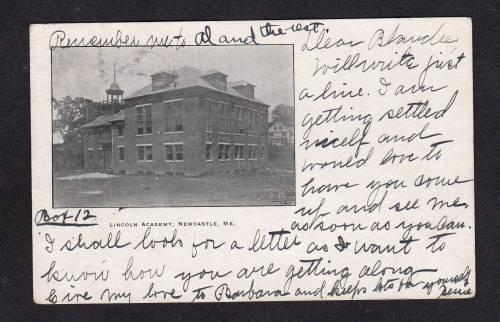 Remember me to Al and the rest
Dear Blanche
Will write just
a line. I am
getting settled
nicely and
would love to
have you come
up and see me
as soon as you can.
Box 12
LINCOLN ACADEMY, NEWCASTLE, ME.
I shall look for a letter as I want to
know how you are getting along
Give my love to Barbara and keeps lots for yourself